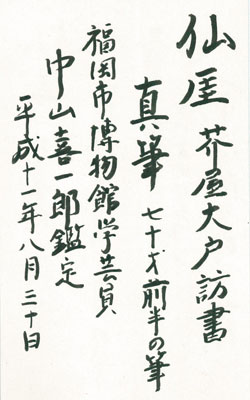 仙厓 芥屋大戸訪書
真筆 七十才前半の筆
福岡市博物館学芸員
中山喜一郎鑑定
平成十一年八月三十日